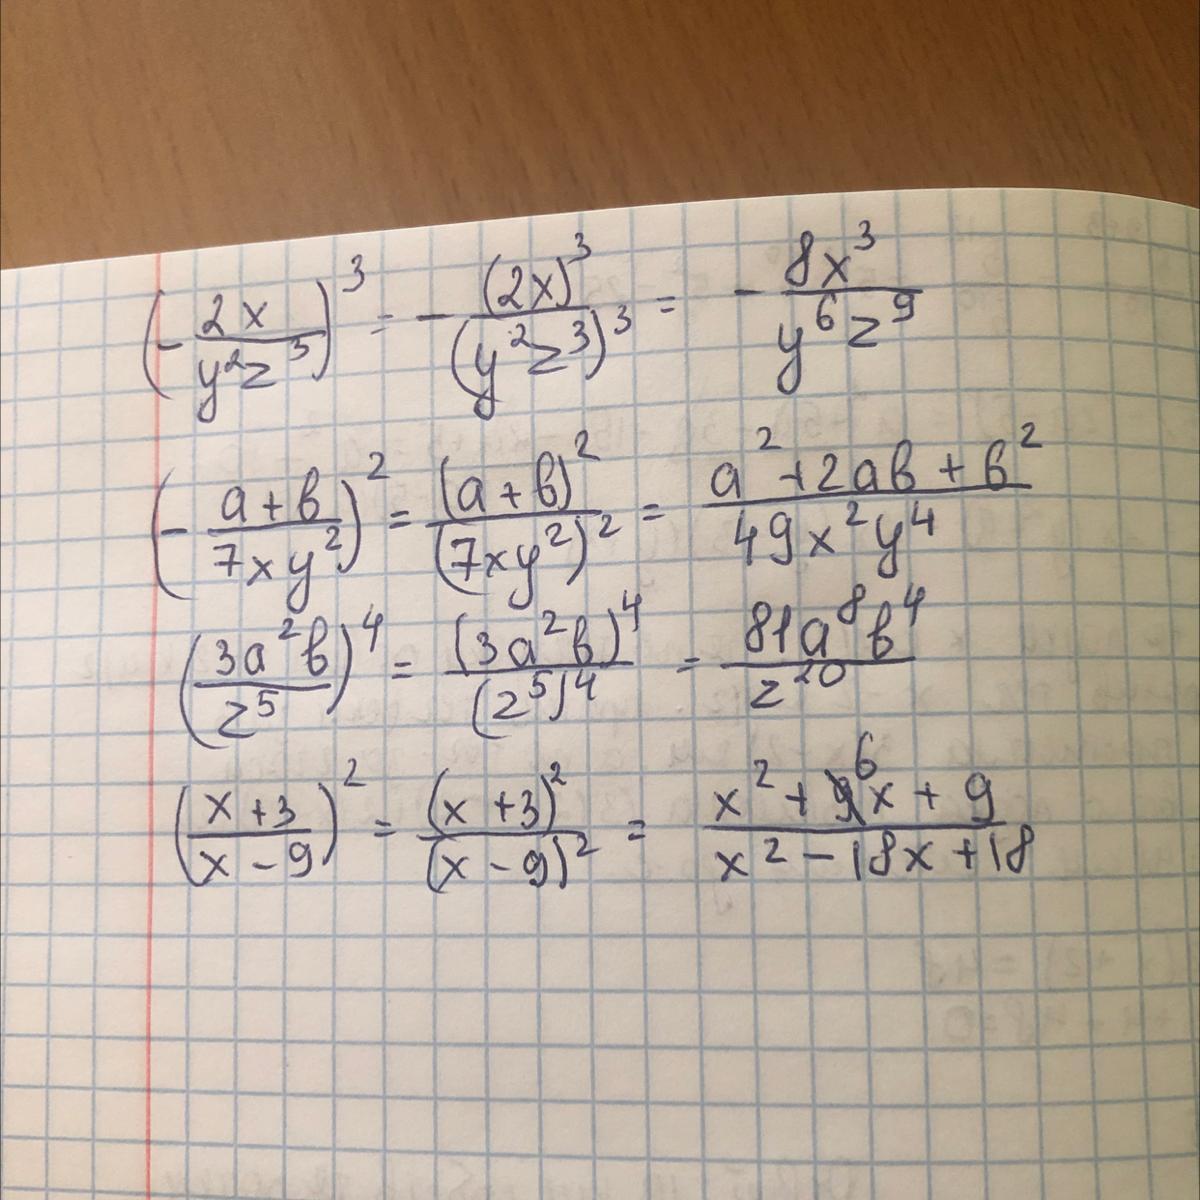 (- 2x / y²z³)³ = - (2x)³ / (y²z³)³ = - 8x³ / y⁶z⁹
(- a+b / 7xy²)² = (a+b)² / (7xy²)² = a²+2ab+b² / 49x²y⁴
(3a²b / z⁵)⁴ = (3a²b)⁴ / (z⁵)⁴ = 81a⁸b⁴ / z²⁰
(x+3 / x-9)² = (x+3)² / (x-9)² = x²+6x+9 / x²-18x+18